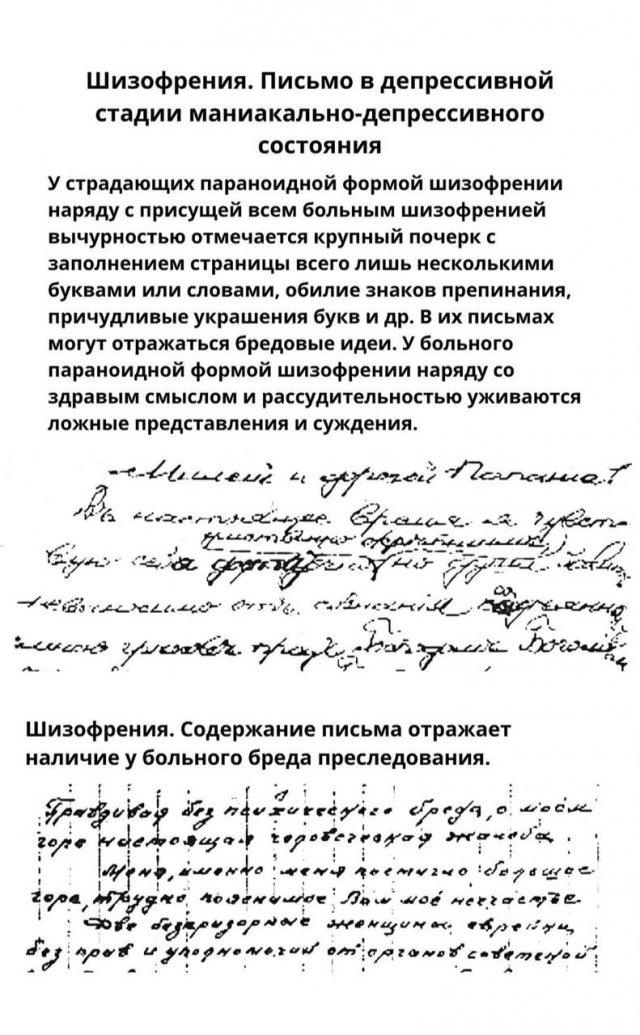 Шизофрения. Письмо в депрессивной
стадии маниакально-депрессивного
состояния
У страдающих параноидной формой шизофрении
наряду с присущей всем больным шизофренией
вычурностью отмечается крупный почерк с
заполнением страницы всего лишь несколькими
буквами или словами, обилие знаков препинания,
причудливые украшения букв и др. В их письмах
могут отражаться бредовые идеи. У больного
параноидной формой шизофрении наряду со
здравым смыслом и рассудительностью уживаются
ложные представления и суждения.
Милый и дорогой Папаша!
В настоящее время я чувст-
вую себя
Шизофрения. Содержание письма отражает
наличие у больного бреда преследования.
Правдивая без психического бреда, о моём
горе настоящая человеческая жалоба.
Меня, именно меня постигло большое
горе, трудно пояснимое Вам моё несчастье.
Две безпризорные женщины еврейки,
без прав и уполномочий от органов советской